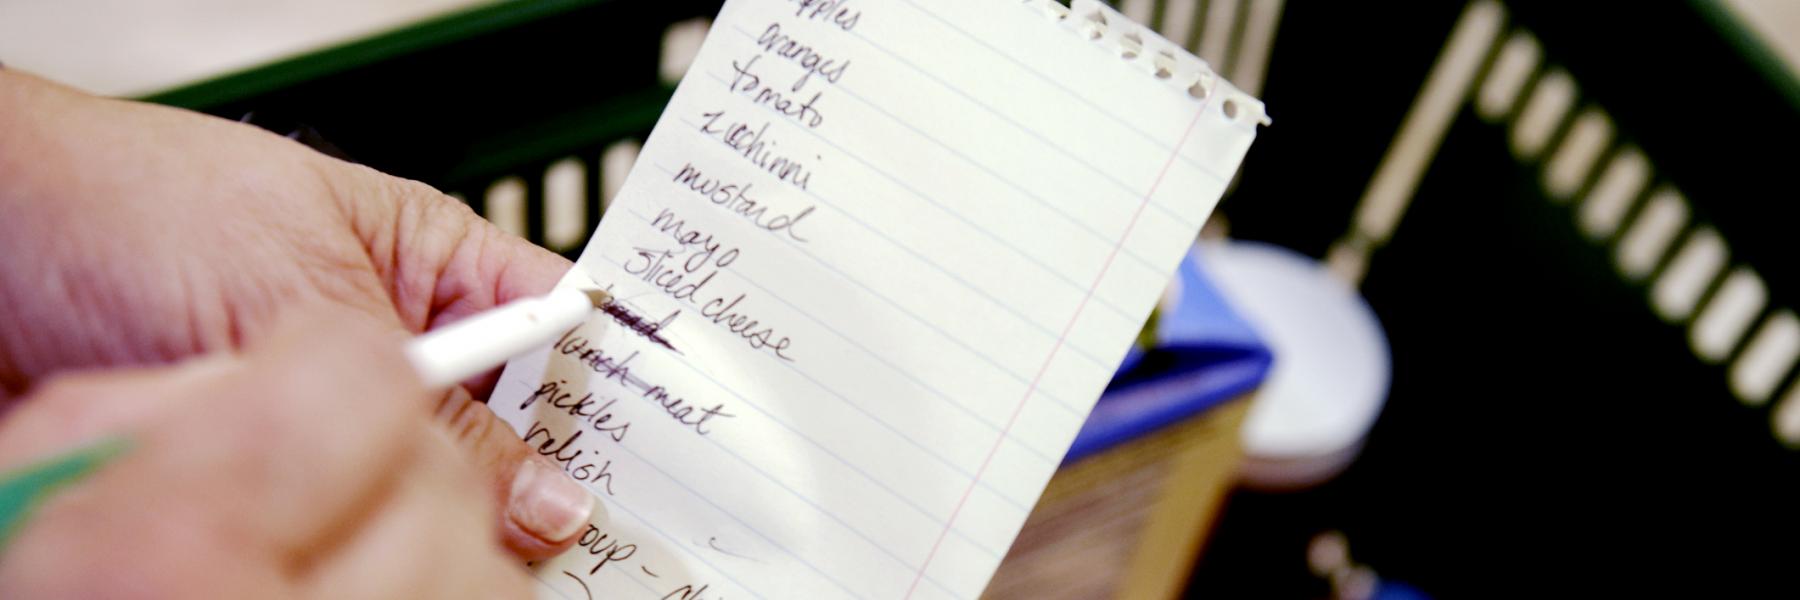 apples
oranges
tomato
zucchinni
mustard
mayo
sliced cheese
bread
lunch meat
pickles
relish
oup -